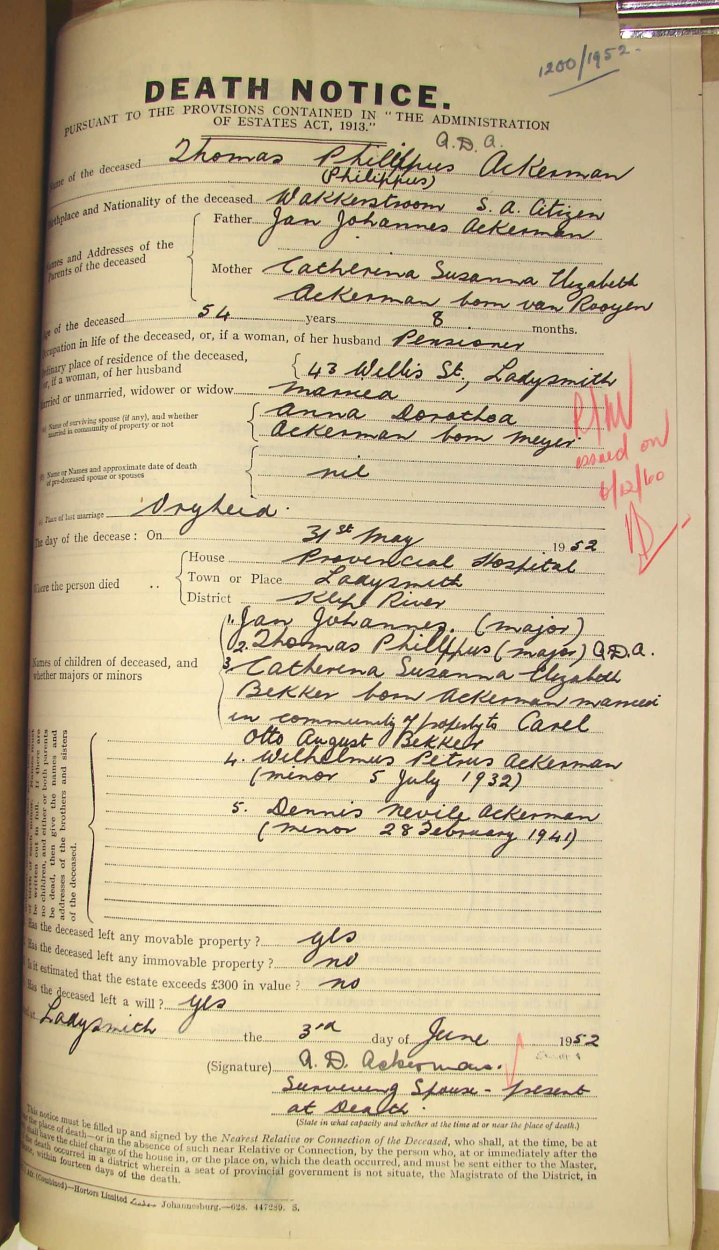 1200/1952.
DEATH NOTICE.
PURSUANT TO THE PROVISIONS CONTAINED IN "THE ADMINISTRATION
OF ESTATES ACT, 1913."
A.D.A.
Name of the deceased Thomas Phillippus Ackerman
(Philippus)
Birthplace and Nationality of the deceased Wakkerstroom S.A. Citizen
Names and Addresses of the Parents of the deceased
Father Jan Johannes Ackerman
Mother Catherina Susanna Elizabeth
Ackerman born van Rooyen
Age of the deceased 54 years 8 months.
Occupation in life of the deceased, or, if a woman, of her husband Pensioner
Ordinary place of residence of the deceased,
or, if a woman, of her husband
43 Willis St, Ladysmith
Married or unmarried, widower or widow married
Name of surviving spouse (if any), and whether
married in community of property or not
Anna Dorothea
Ackerman born Meyer
Name or Names and approximate date of death
of pre-deceased spouse or spouses
nil
issued on
6/12/60
Place of last marriage Vryheid.
The day of the decease: On 31st May 1952
Where the person died ..
House Provincial Hospital
Town or Place Ladysmith
District Klip River
Names of children of deceased, and
whether majors or minors
1. Jan Johannes. (major)
2. Thomas Phillippus (major) A.D.A.
3. Catherina Susanna Elizabeth
Bekker born Ackerman married
in community of property to Carel
Otto August Bekker
4. Wilhelmus Petrus Ackerman
(minor 5 July 1932)
5. Dennis Nevile Ackerman
(minor 28 February 1941)
be written out in full. If there are
no children, and either or both parents
be dead, then give the names and
addresses of the brothers and sisters
of the deceased.
Has the deceased left any movable property? yes
Has the deceased left any immovable property? no
Is it estimated that the estate exceeds £300 in value? no
Has the deceased left a will? yes
Ladysmith the 3rd day of June 1952
(Signature) A. D. Ackerman.
Surviving Spouse - present
at Death.
(State in what capacity and whether at the time at or near the place of death.)
This notice must be filled up and signed by the Nearest Relative or Connection of the Deceased, who shall, at the time, be at
the place of death—or in the absence of such near Relative or Connection, by the person who, at or immediately after the
shall have the chief charge of the house in, or the place on, which the death occurred, and must be sent either to the Master,
the death occurred in a district wherein a seat of provincial government is not situate, the Magistrate of the District, in
within fourteen days of the death.
(Combined)—Hortors Limited Johannesburg.—628. 447289. S.